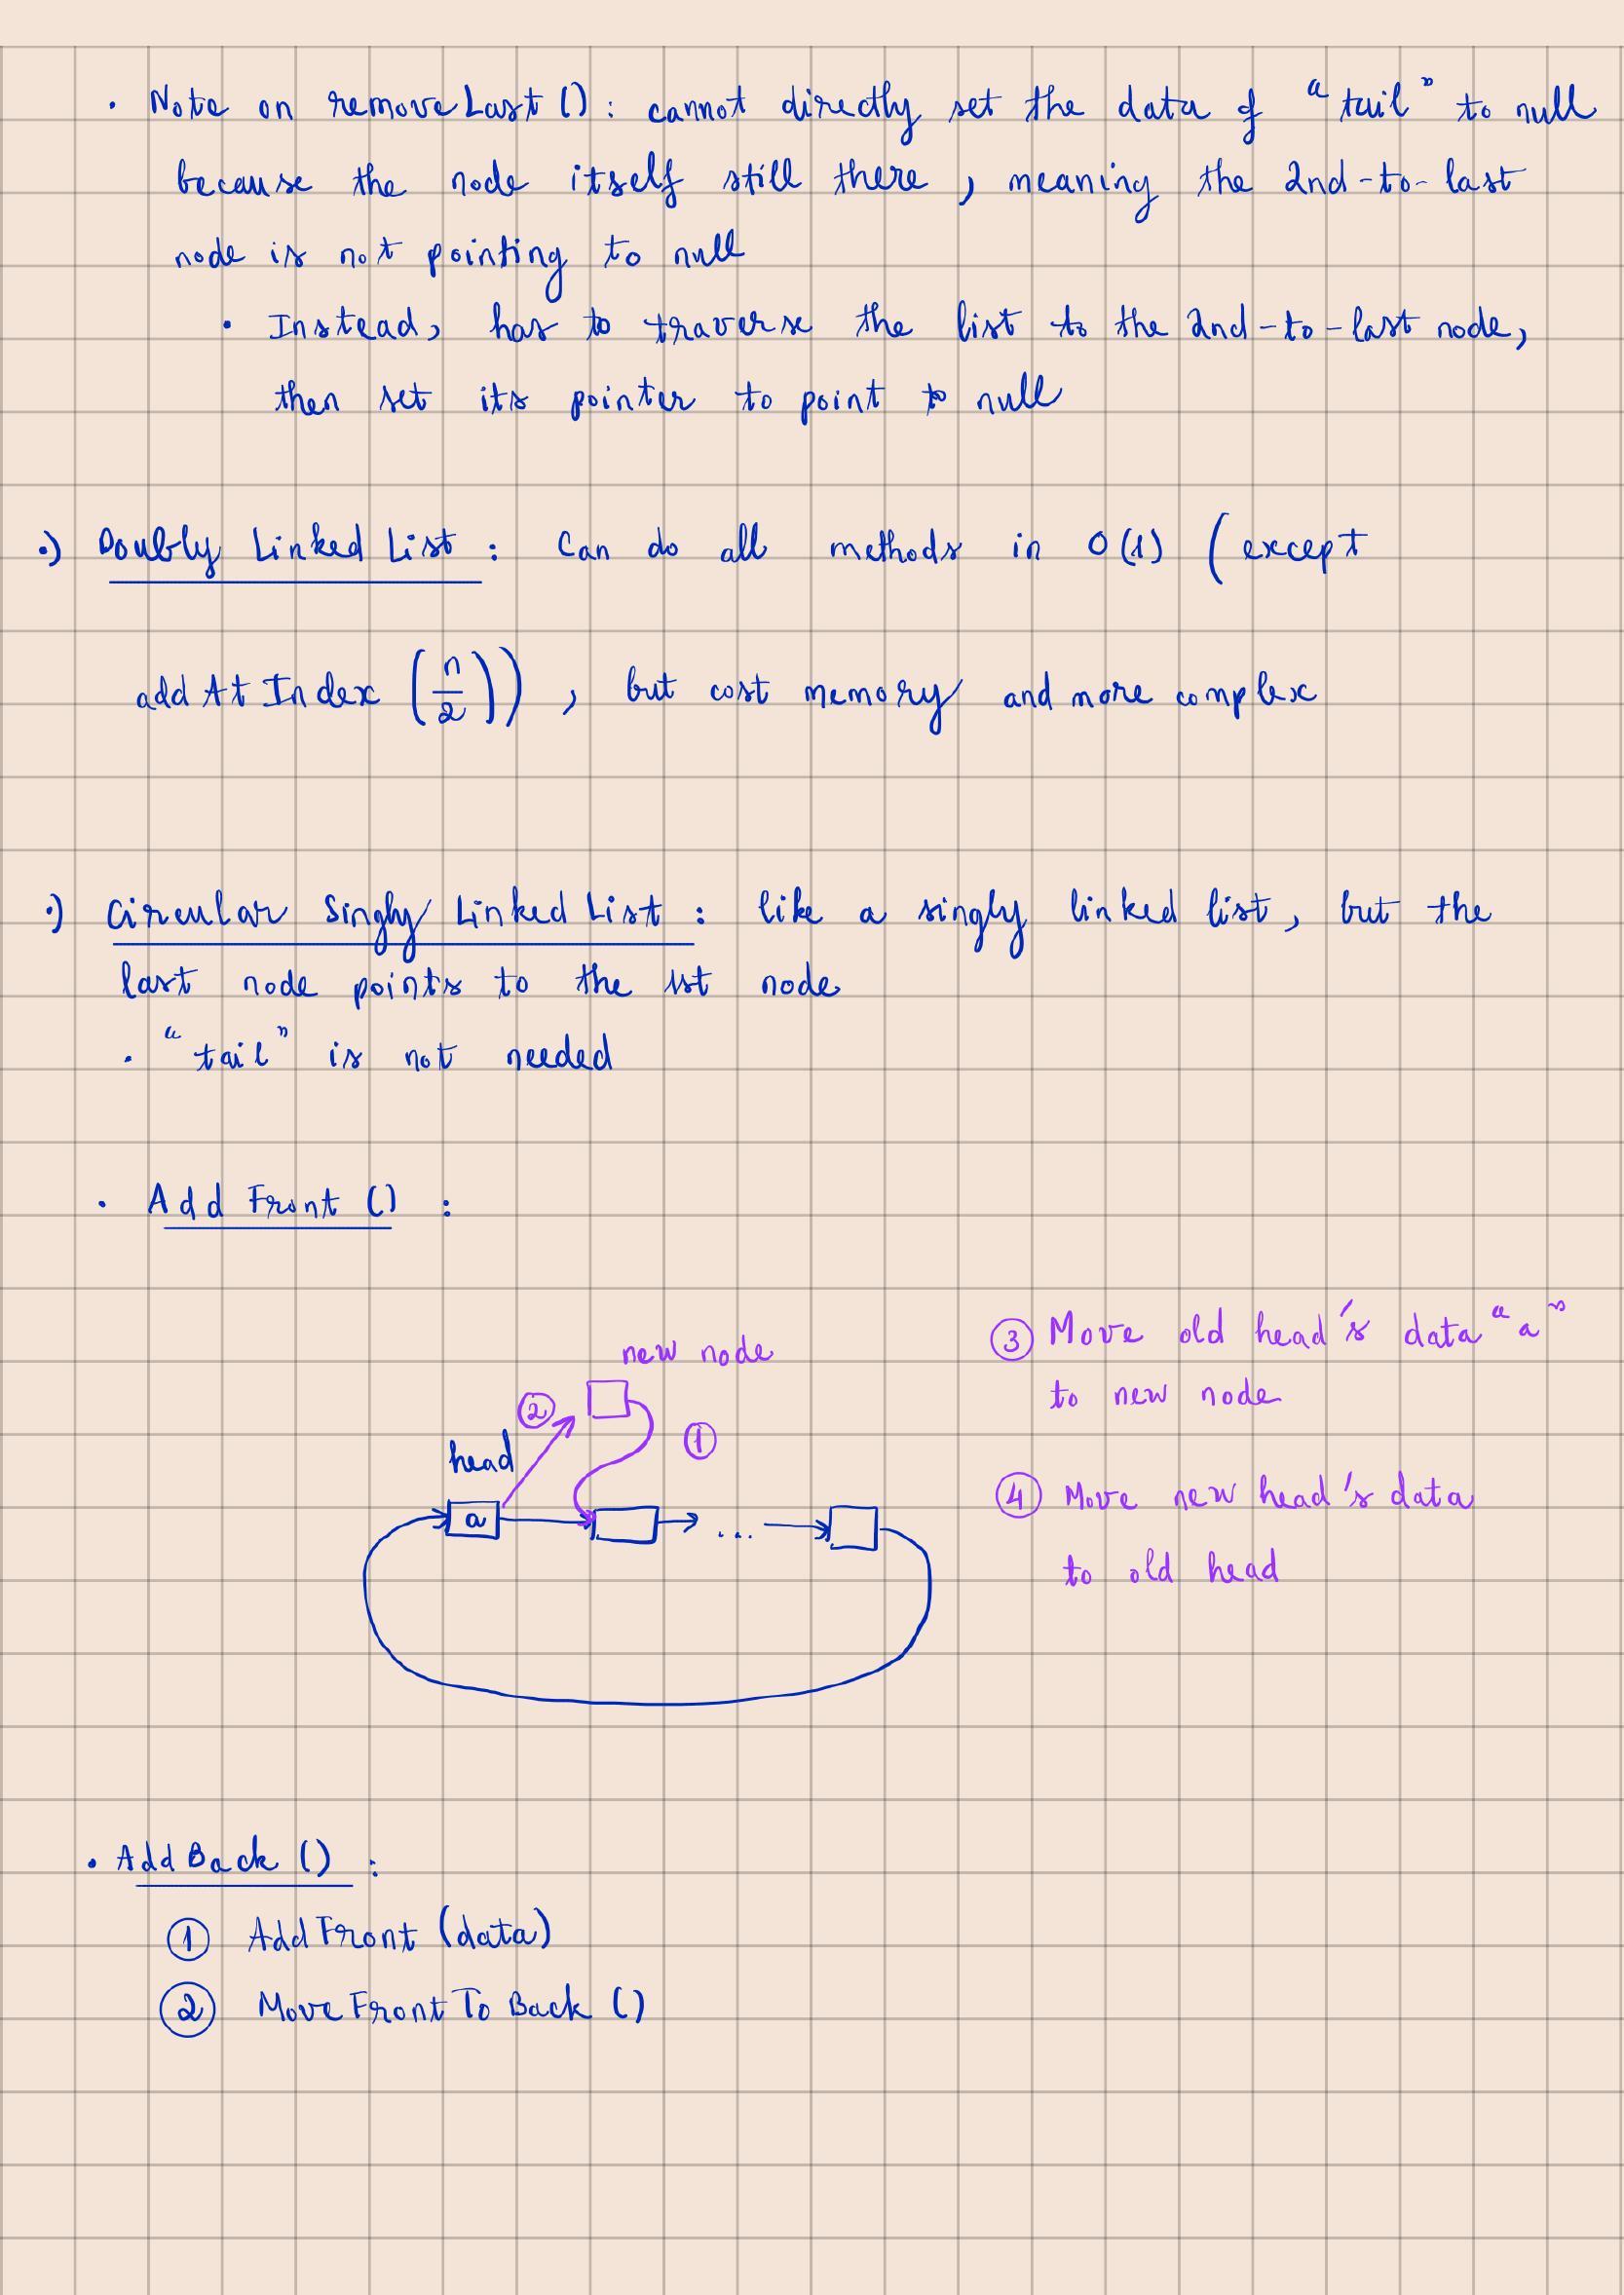 · Note on removeLast(): cannot directly set the data of "tail" to null
because the node itself still there, meaning the 2nd-to-last
node is not pointing to null
· Instead, has to traverse the list to the 2nd-to-last node,
then set its pointer to point to null
·) Doubly Linked List: Can do all methods in O(1) (except
addAtIndex (n/2)), but cost memory and more complex
·) Circular Singly Linked List: like a singly linked list, but the
last node points to the 1st node
· "tail" is not needed
· AddFront():
new node
② ①
head
a ...
③ Move old head's data "a"
to new node
④ Move new head's data
to old head
· AddBack():
① AddFront(data)
② MoveFrontToBack()